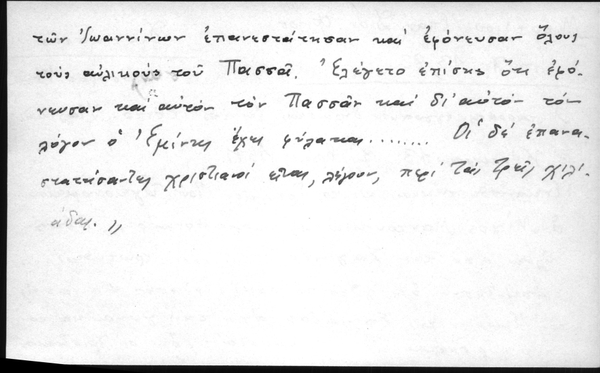 τῶν Ἰωαννίνων ἐπανεστάτησαν καὶ ἐφόνευσαν ὅλους
τοὺς αὐλικοὺς τοῦ Πασσᾶ. Ἐλέγετο ἐπίσης ὅτι ἐφό-
νευσαν καὶ αὐτὸν τὸν Πασσᾶν καὶ δι' αὐτὸν τὸν
λόγον ὁ Ἐμίνης ἔχει φύλακας........ Οἱ δὲ ἐπανα-
στατήσαντες χριστιανοὶ εἶναι, λέγουν, περὶ τὰς τρεῖς χιλι-
άδας. „